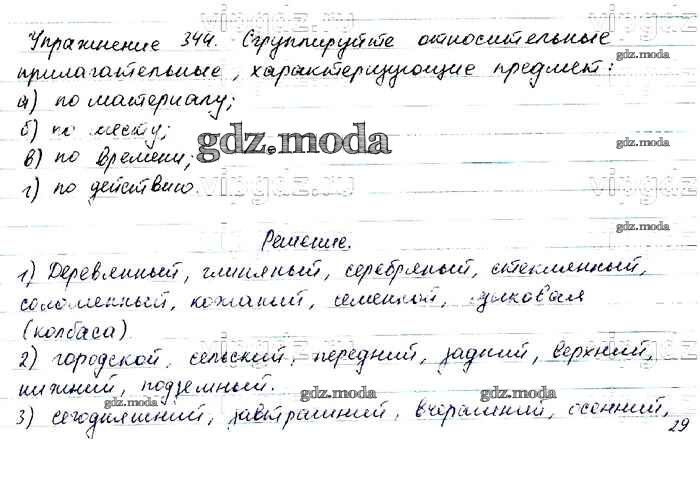 Упражнение 344. Сгруппируйте относительные
прилагательные, характеризующие предмет:
а) по материалу;
б) по месту;
в) по времени;
г) по действию.
gdz.moda
Решение.
1) Деревянный, глиняный, серебряный, стеклянный,
соломенный, кожаный, семенной,
(колбаса)
2) городской, сельский, передний, задний, верхний,
нижний, подземный.
3) сегодняшний, завтрашний, вчерашний, осенний,
29
gdz.moda
gdz.moda
gdz.moda
gdz.moda
gdz.moda
gdz.moda
gdz.moda
gdz.moda
vipgdz.ru
vipgdz.ru
vipgdz.ru
vipgdz.ru
vipgdz.ru